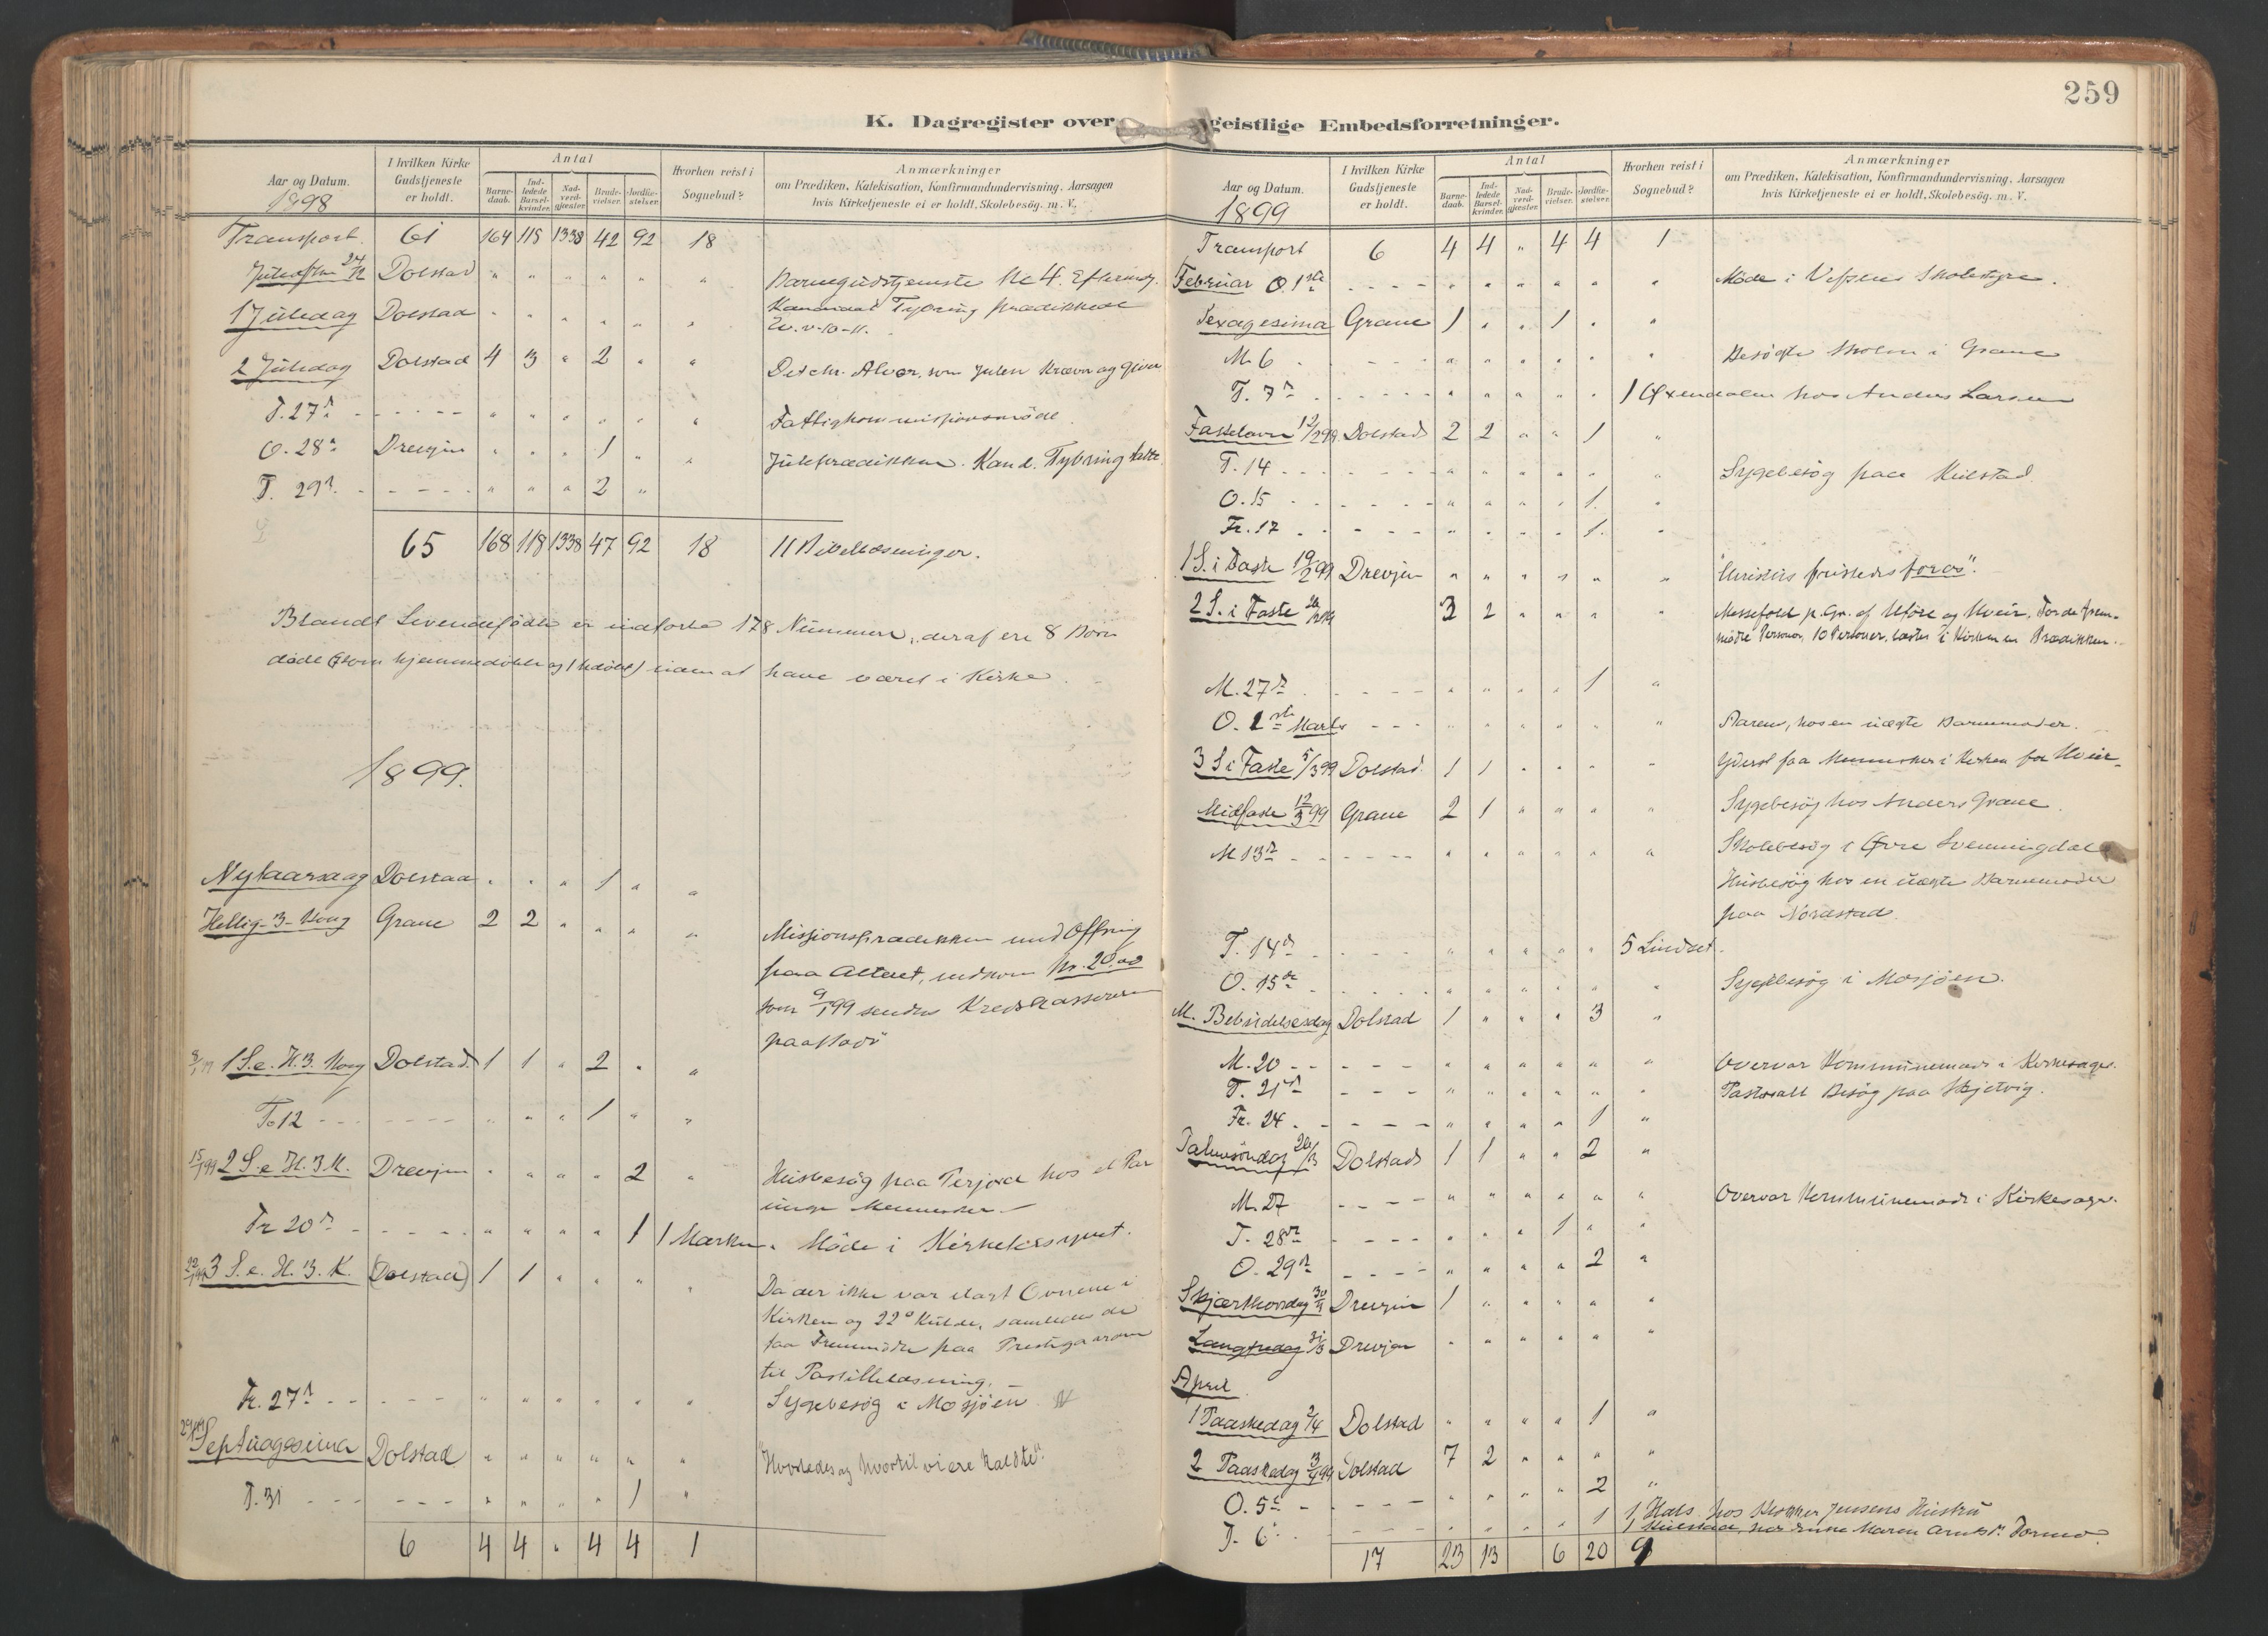 259
K. Dagregister over geistlige Embedsforretninger.
Aar og Datum. 1898 | I hvilken Kirke Gudstjeneste er holdt. | Antal | Barnedaab. | Indledede Barselkvinder. | Nadverdgjester. | Brudevielser. | Jordfæstelser. | Hvorhen reist i Sognebud? | Anmærkninger om Prædiken, Katekisation, Konfirmandundervisning. Aarsagen hvis Kirketjeneste ei er holdt, Skolebesög. m. V.
Transport. 61 164 115 1338 42 92 18
Juleaften 24/12 Dolstad " " " " " " Barnegudstjeneste Kl 4. Efterm.
1 Juledag Dolstad " " " " " " Kandidat Tybring prædikkede
Ev. v. 10-11.
2 Juledag Dolstad 4 3 " 2 " " Det chr. Alvor, som Julen kræver og giver
T. 27de - - - - " " " " " " Fattigkommissionsmöde.
O. 28de Drevjen " " " 1 " " Juleprædikken. Kand. Tybring talte.
T. 29de - - - - " " " 2 "
65 168 118 1338 47 92 18 11 Bibellæsninger.
Blandt Levendefödte er indförte 178 Nummere, deraf ere 8 Börn
döde (7 som hjemmedöbte og 1 udöbt) uden at have været i Kirke.
1899.
Nytaarsdag Dolstad " " " 1 " "
Hellig-3-Kong Grane 2 2 " " " " Missionsprædikken med Offring
paa Alteret, indkom Kr. 20.00
som 9/1 99 sendes Kredskassereren
paa
8/1 99 1 S. e. H. 3. Kong Dolstad. 1 1 " 2 " "
To 12 - - - - " " " 1 " "
15/1 99 2 S. e. H. 3 K. Drevjen " " " " 2 " Husbesög paa hos et Par
unge Mennesker -
Fr 20de - - - - " " " " 1 1 Marken. Möde i Kirketilsynet.
22/1 99 3 S. e. H. 3. K. (Dolstad) 1 1 " " " " Da der ikke var lagt Ovnene i
Kirken og 22° Kulde, samledes de
faa Fremmödte paa Prestegaarden
til Postillelæsning. -
Fr. 27de - - - - " " " " " " Sygebesög i Mosjöen
29/1 99 Septuagesima Dolstad " " " " " " "Hvorledes og hvortil vi ere kaldte".
T. 31 - - - - " " " " 1 "
6 4 4 " 4 4 1
Aar og Datum. 1899 | I hvilken Kirke Gudstjeneste er holdt. | Antal | Barnedaab. | Indledede Barselkvinder. | Nadverdgjester. | Brudevielser. | Jordfæstelser. | Hvorhen reist i Sognebud? | Anmærkninger om Prædiken, Katekisation, Konfirmandundervisning. Aarsagen hvis Kirketjeneste ei er holdt, Skolebesög. m. V.
Transport 6 4 4 " 4 4 1
Februar O. 1ste - - - - " " " " " " Möde i Vefsens Skolestyre.
Sexagesima Grane 1 " " 1 " "
M. 6 - - - - " " " " " " Besögte Skolen i Grane
T. 7de - - - - " " " " " 1 hos Anders Larsen
Fastelavn 12/2 99 Dolstad 2 2 " " 1 "
T. 14 - - - - " " " " " " Sygebesög paa Kulstad.
O. 15 - - - - " " " " 1. "
Fr. 17 - - - - " " " " 1. "
1 S. i Faste 19/2 99 Drevjen " " " " " "
2 S. i Faste 26/2 99 3 2 " " " " Messefald p. Gr. af Uföre og Uveir. For de frem-
mödte Personer, 10 Personer, læstes i Kirken en Prædikken.
M. 27de - - - - " " " " 1 "
O. 1ste Marts - - - - " " " " " " hos en uægte Barnemoder.
3 S. i Faste 5/3 99 Dolstad. 1 1 " " " " Yderst faa Mennesker i Kirken for Uveir.
Midfaste 12/3 99 Grane 2 1 " " " " Sygebesög hos Anders Grane.
M 13de - - - - " " " " " " Skolebesög i Övre Svenningdal
Husbesög hos en uægte Barnemoder
paa
T. 14de - - - - " " " " " 5 Lindset.
O. 15de - - - - " " " " " " Sygebesög i Mosjöen.
M. Bebudelsesdag Dolstad 1 " " " 3 "
M. 20 - - - - " " " " " " Overvar Kommunemöde i Kirkesager.
T. 21de - - - - " " " " " " Pastoralt Besög paa Skjetvig.
Fr. 24 - - - - " " " " 1 "
Palmesöndag 26/3 Dolstad 1 1 " " 2 "
M. 27 - - - " " " " " " Overvar Kommunemöde i Kirkesager.
T. 28de - - - - " " " 1 " "
O. 29de - - - - " " " " 2 "
Skjærthorsdag 30/3 Drevjen 1 " " " " "
Langfredag 31/3 Drevjen " " " " " "
April
1 Paaskedag 2/4 Dolstad " " " " 1 "
2 Paaskedag 3/4 99 Dolstad 7 2 " " " "
O. 5te - - - - " " " " 2 "
T. 6te - - - - " " " " 1 1 Hals. hos Klokker Jensens Hustru
1 Kulstad, hos Maren
17 23 13 6 20 9